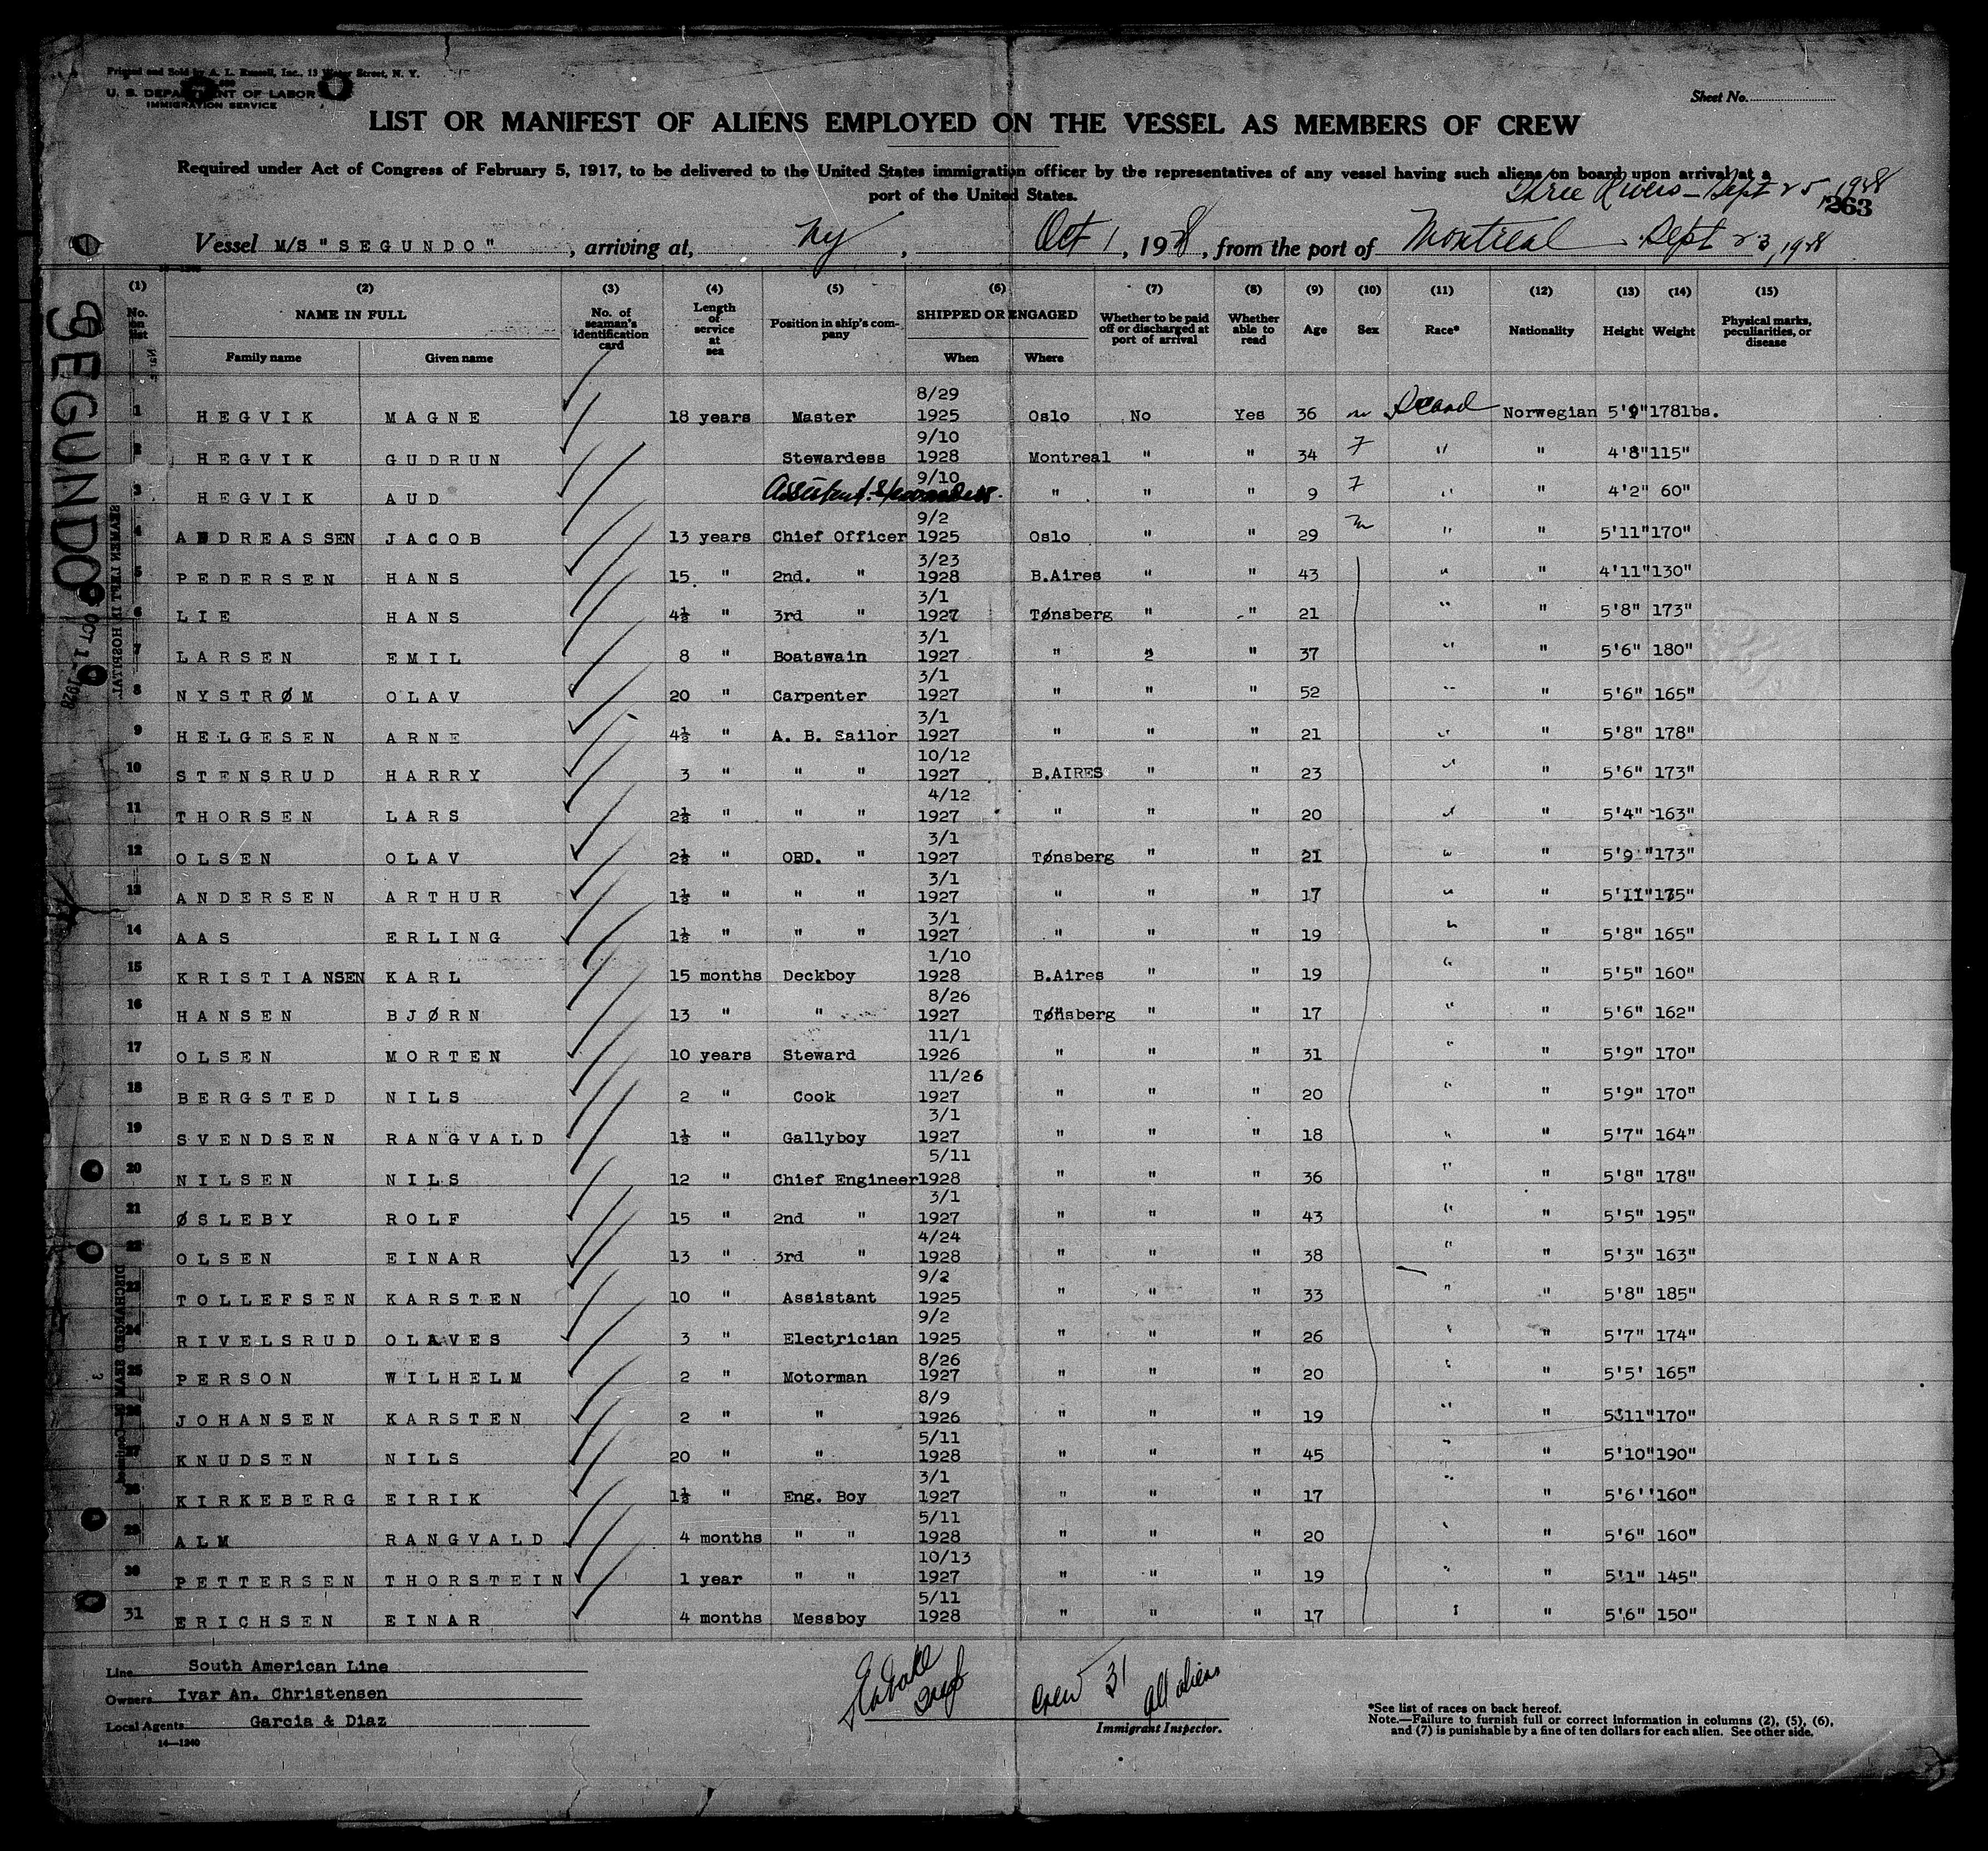 Printed and Sold by A. L. Russell, Inc., 13 Water Street, N. Y.
U. S. DEPARTMENT OF LABOR
IMMIGRATION SERVICE
Sheet No.
LIST OR MANIFEST OF ALIENS EMPLOYED ON THE VESSEL AS MEMBERS OF CREW
Required under Act of Congress of February 5, 1917, to be delivered to the United States immigration officer by the representatives of any vessel having such aliens on board upon arrival at a
port of the United States.
Three Rivers - Sept 25, 1928
263
Vessel M/S "SEGUNDO", arriving at, NY, Oct 1, 1928, from the port of Montreal Sept 23, 1928
(1) (2) (3) (4) (5) (6) (7) (8) (9) (10) (11) (12) (13) (14) (15)
No. on list NAME IN FULL Family name Given name No. of seaman's identification card Length of service at sea Position in ship's company SHIPPED OR ENGAGED When Where Whether to be paid off or discharged at port of arrival Whether able to read Age Sex Race* Nationality Height Weight Physical marks, peculiarities, or disease
1 HEGVIK MAGNE 18 years Master 8/29 1925 Oslo No Yes 36 m Scand Norwegian 5'9" 178lbs.
2 HEGVIK GUDRUN Stewardess 9/10 1928 Montreal " " 34 F " " 4'8" 115"
3 HEGVIK AUD Assistent Stewardess. 9/10 " " " 9 F " " 4'2" 60"
4 ANDREASSEN JACOB 13 years Chief Officer 9/2 1925 Oslo " " 29 m " " 5'11" 170"
5 PEDERSEN HANS 15 " 2nd. " 3/23 1928 B.Aires " " 43 " " 4'11" 130"
6 LIE HANS 4½ " 3rd " 3/1 1927 Tønsberg " " 21 " " 5'8" 173"
7 LARSEN EMIL 8 " Boatswain 3/1 1927 " " " 37 " " 5'6" 180"
8 NYSTRØM OLAV 20 " Carpenter 3/1 1927 " " " 52 " " 5'6" 165"
9 HELGESEN ARNE 4½ " A. B. Sailor 3/1 1927 " " " 21 " " 5'8" 178"
10 STENSRUD HARRY 3 " " " 10/12 1927 B.AIRES " " 23 " " 5'6" 173"
11 THORSEN LARS 2½ " " " 4/12 1927 " " " 20 " " 5'4" 163"
12 OLSEN OLAV 2½ " ORD. " 3/1 1927 Tønsberg " " 21 " " 5'9" 173"
13 ANDERSEN ARTHUR 1½ " " " 3/1 1927 " " " 17 " " 5'11" 175"
14 AAS ERLING 1½ " " " 3/1 1927 " " " 19 " " 5'8" 165"
15 KRISTIANSEN KARL 15 months Deckboy 1/10 1928 B.Aires " " 19 " " 5'5" 160"
16 HANSEN BJØRN 13 " " 8/26 1927 Tønsberg " " 17 " " 5'6" 162"
17 OLSEN MORTEN 10 years Steward 11/1 1926 " " " 31 " " 5'9" 170"
18 BERGSTED NILS 2 " Cook 11/26 1927 " " " 20 " " 5'9" 170"
19 SVENDSEN RANGVALD 1½ " Gallyboy 3/1 1927 " " " 18 " " 5'7" 164"
20 NILSEN NILS 12 " Chief Engineer 5/11 1928 " " " 36 " " 5'8" 178"
21 ØSLEBY ROLF 15 " 2nd " 3/1 1927 " " " 43 " " 5'5" 195"
22 OLSEN EINAR 13 " 3rd " 4/24 1928 " " " 38 " " 5'3" 163"
23 TOLLEFSEN KARSTEN 10 " Assistant 9/2 1925 " " " 33 " " 5'8" 185"
24 RIVELSRUD OLAVES 3 " Electrician 9/2 1925 " " " 26 " " 5'7" 174"
25 PERSON WILHELM 2 " Motorman 8/26 1927 " " " 20 " " 5'5' 165"
26 JOHANSEN KARSTEN 2 " " 8/9 1926 " " " 19 " " 5'11" 170"
27 KNUDSEN NILS 20 " " 5/11 1928 " " " 45 " " 5'10" 190"
28 KIRKEBERG EIRIK 1½ " Eng. Boy 3/1 1927 " " " 17 " " 5'6" 160"
29 ALM RANGVALD 4 months " " 5/11 1928 " " " 20 " " 5'6" 160"
30 PETTERSEN THORSTEIN 1 year " " 10/13 1927 " " " 19 " " 5'1" 145"
31 ERICHSEN EINAR 4 months Messboy 5/11 1928 " " " 17 " " 5'6" 150"
SEGUNDO
OCT 1 - 1928
SEAMEN LEFT IN HOSPITAL
DISCHARGED SEAMEN
Line South American Line
Owners Ivar An. Christensen
Local Agents Garcia & Diaz
14—1240
Crew 31 all aliens
Immigrant Inspector.
*See list of races on back hereof.
Note.—Failure to furnish full or correct information in columns (2), (5), (6),
and (7) is punishable by a fine of ten dollars for each alien. See other side.